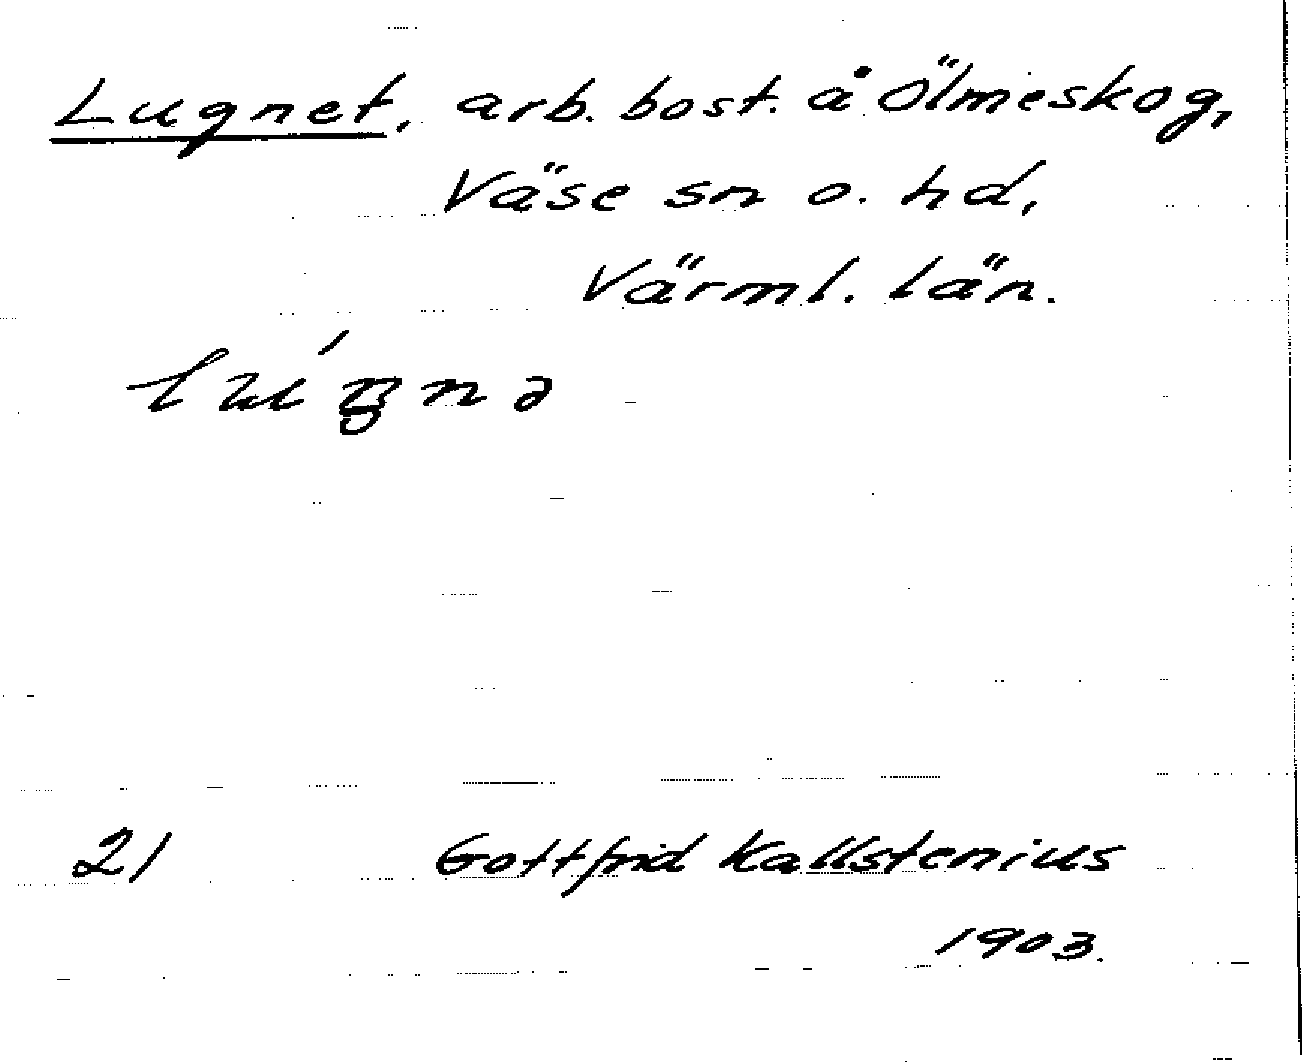 Lugnet, arb. bost. å Ölmeskog,
Väse sn o. hd,
Värml. län.
21 Gottfrid Kallstenius
1903.